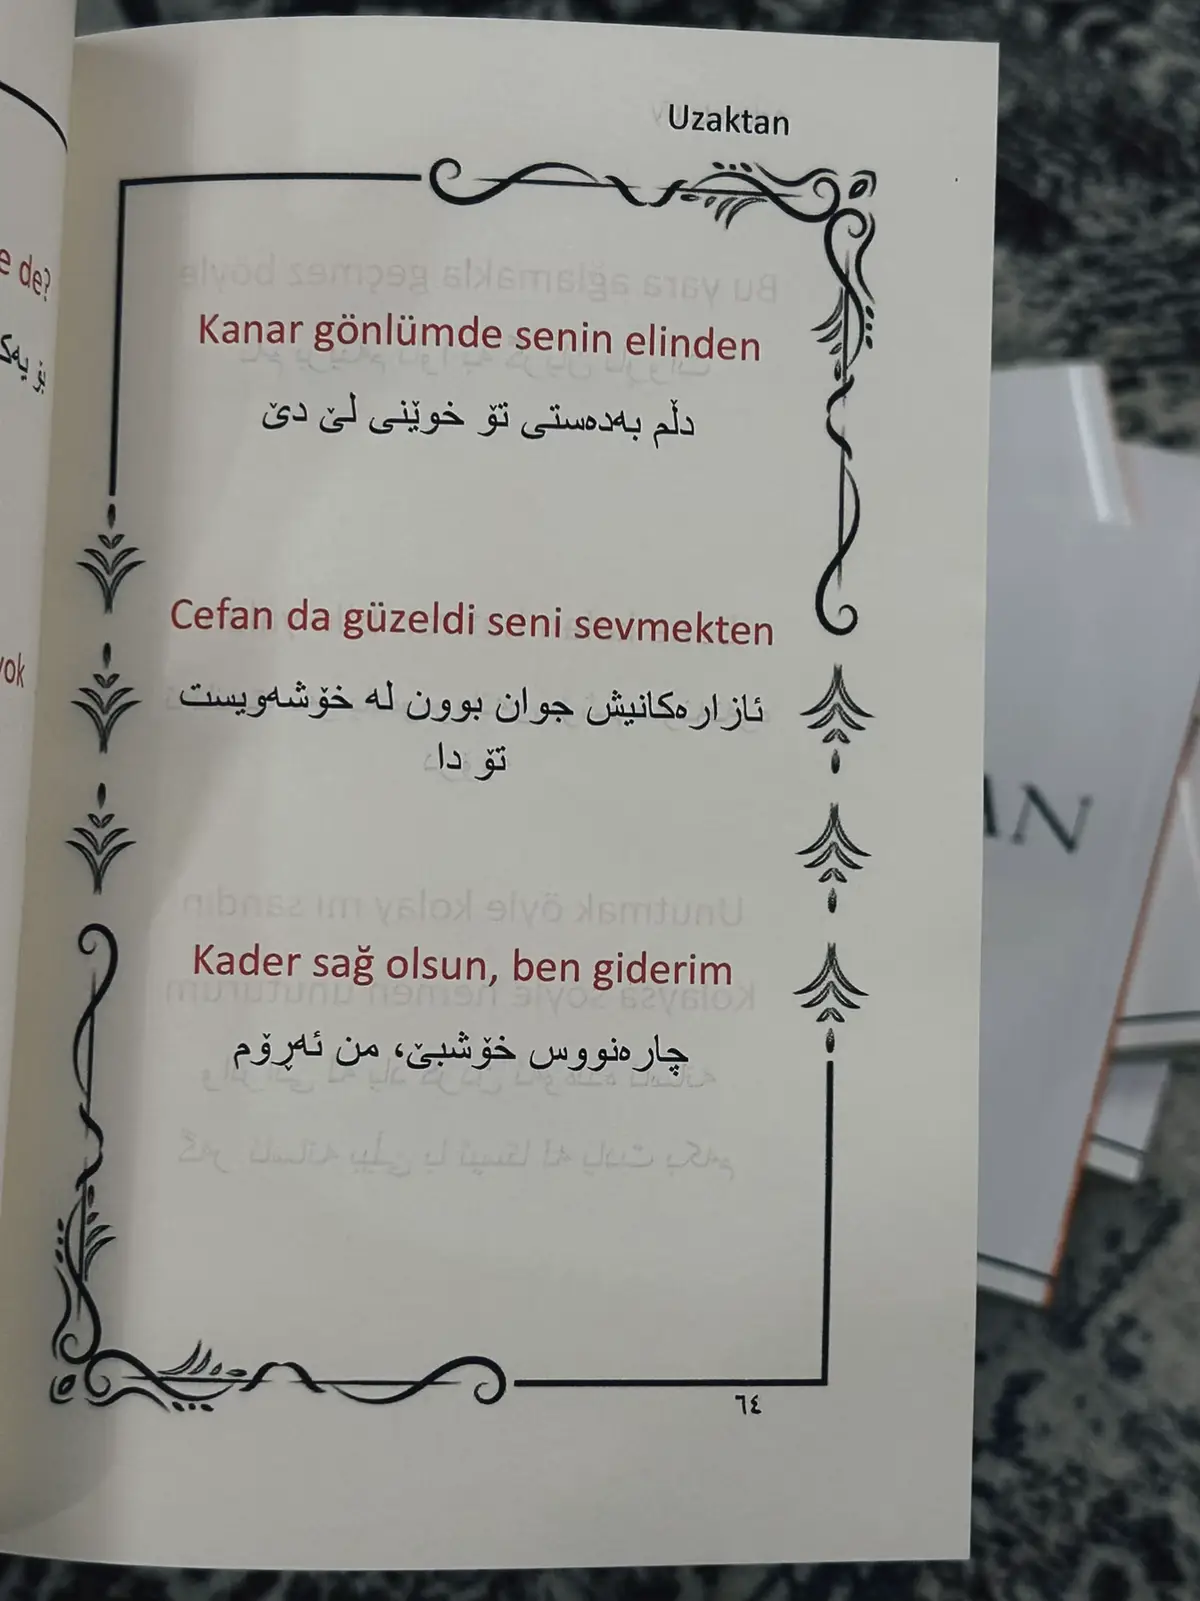 Uzaktan
Kanar gönlümde senin elinden
دڵم بەدەستی تۆ خوێنی لێ دێ
Cefan da güzeldi seni sevmekten
ئازارەکانیش جوان بوون لە خۆشەویست
تۆ دا
Kader sağ olsun, ben giderim
چارەنووس خۆشبێ، من ئەڕۆم
٦٤
e de?
بۆ یەک
yok
AN